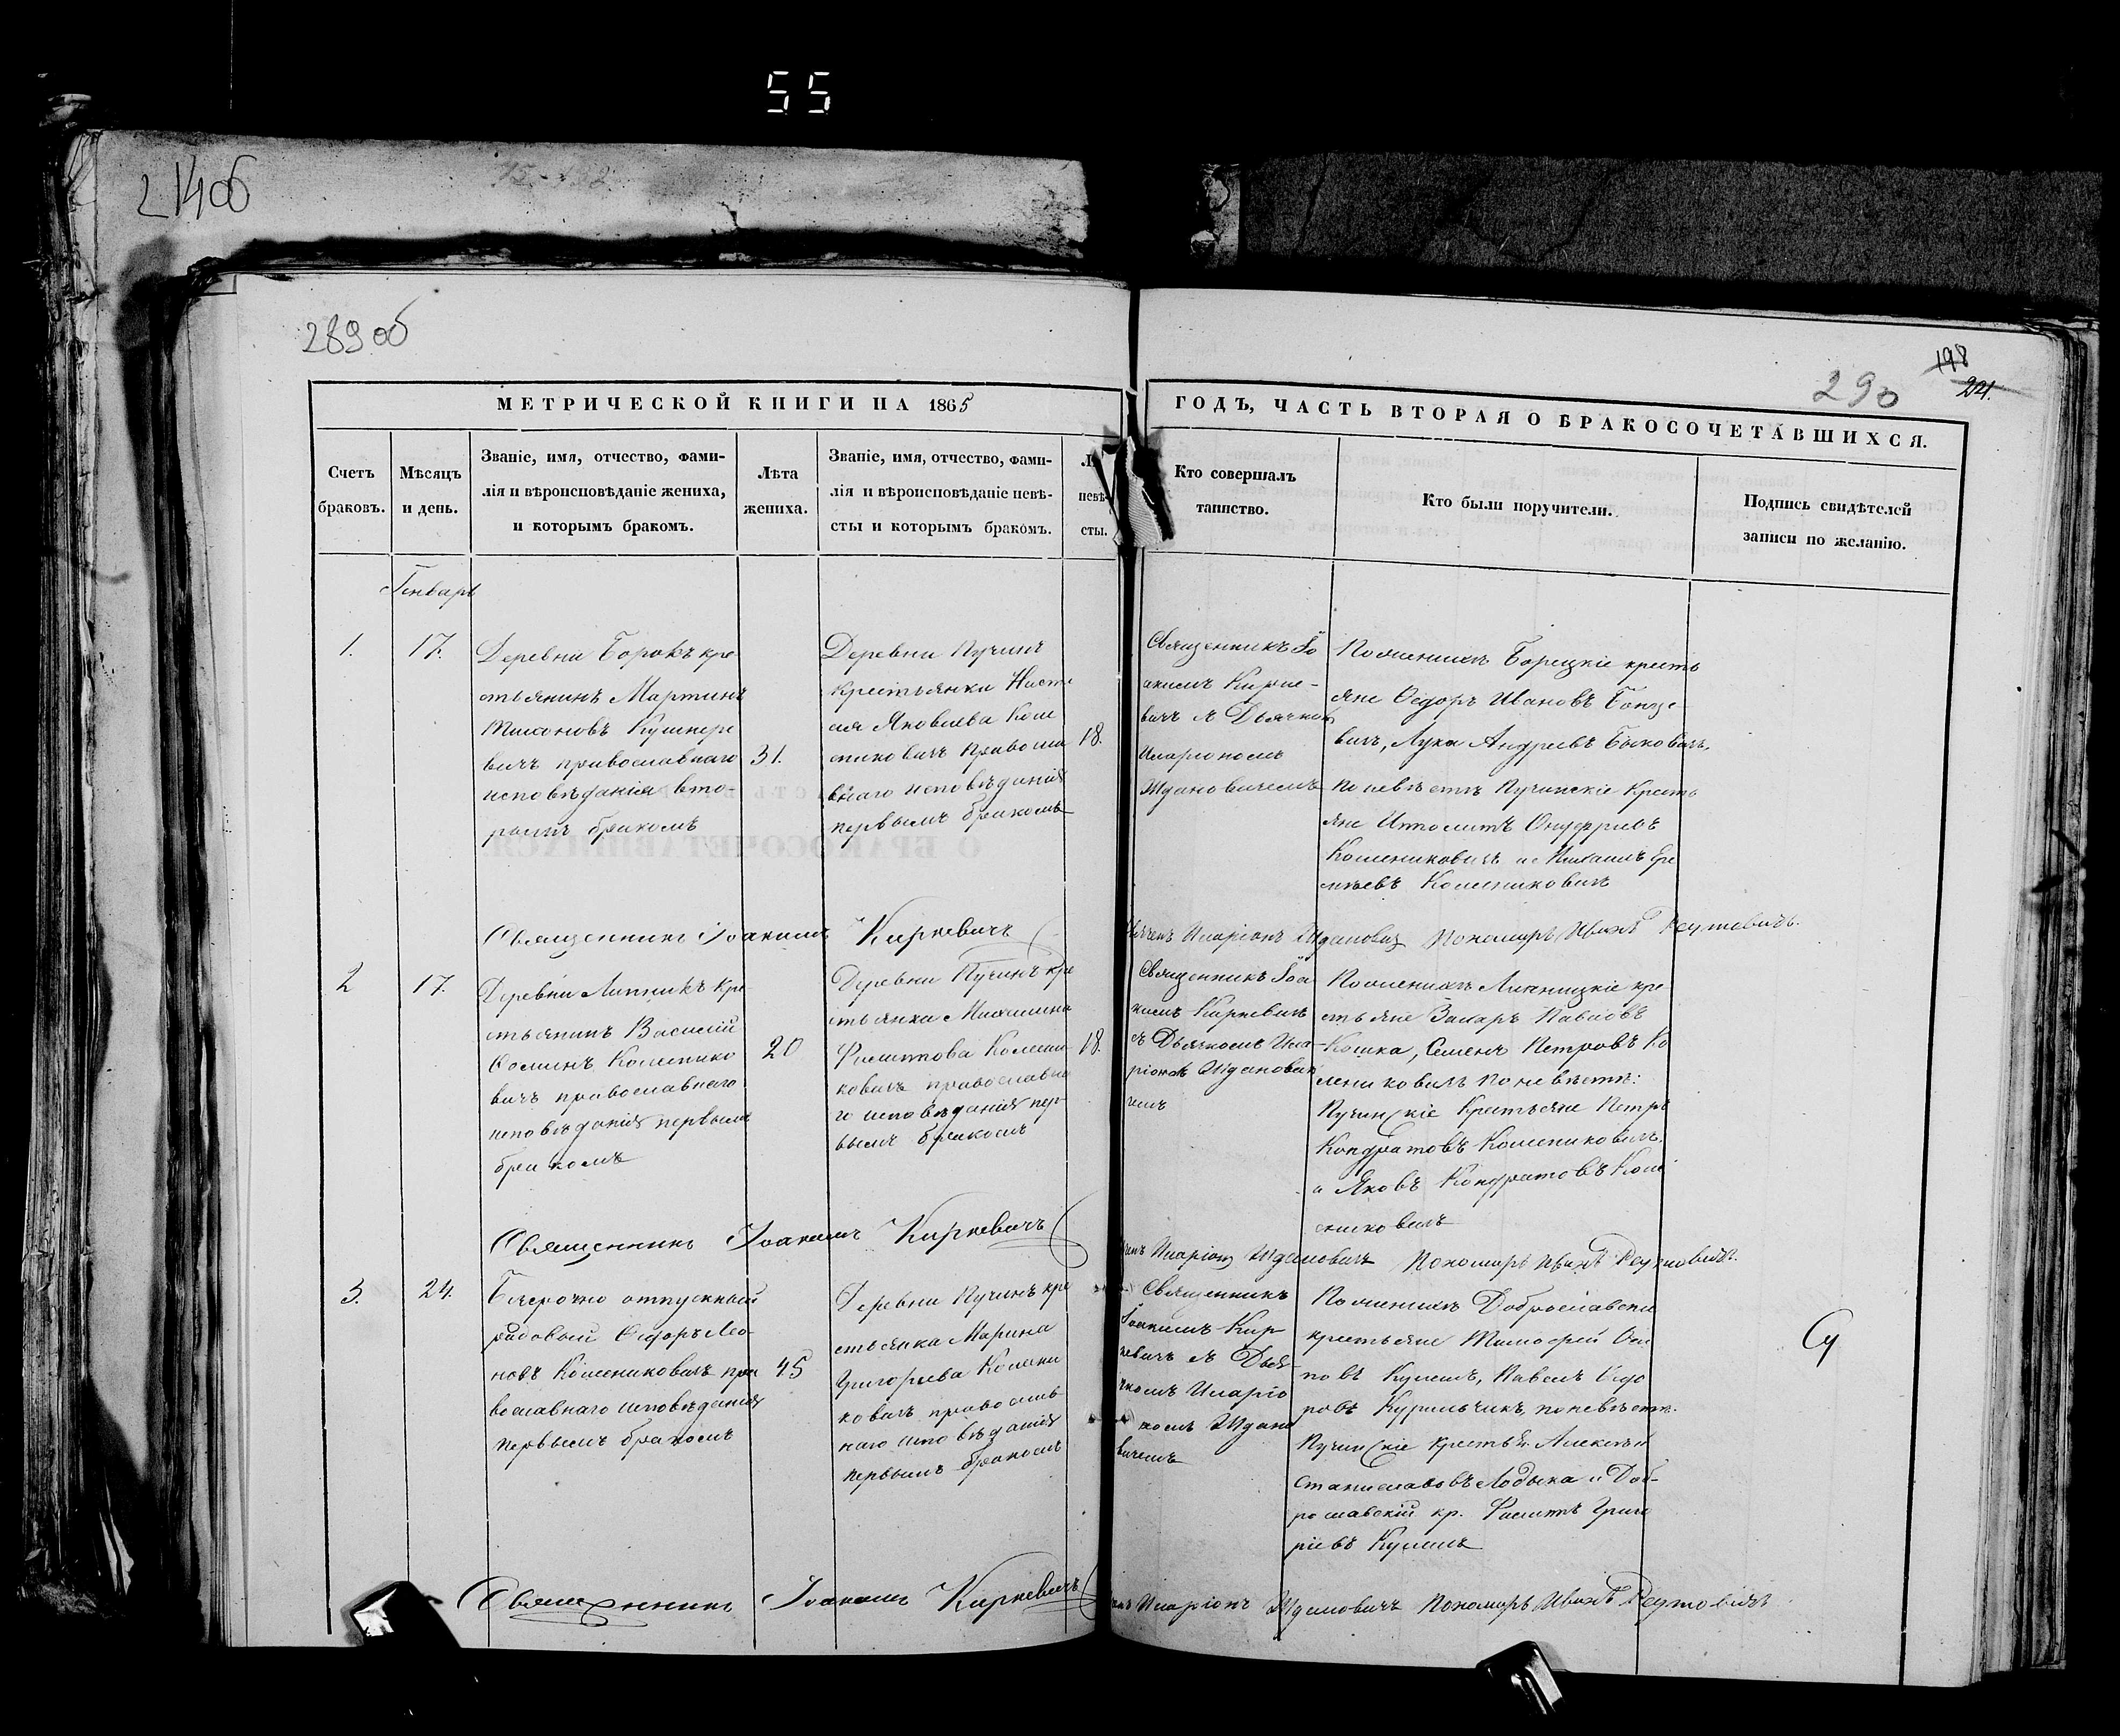 55
214об
289об
198
290
221.
МЕТРИЧЕСКОЙ КНИГИ НА 1865
ГОДЪ, ЧАСТЬ ВТОРАЯ О БРАКОСОЧЕТАВШИХСЯ.
Счетъ
браковъ.
Мѣсяцъ
и день.
Званіе, имя, отчество, фами-
лія и вѣроисповѣданіе жениха,
и которымъ бракомъ.
Лѣта
жениха.
Званіе, имя, отчество, фами-
лія и вѣроисповѣданіе невѣ-
сты и которымъ бракомъ.
невѣ-
сты.
Кто совершалъ
таинство.
Кто были поручители.
Подпись свидѣтелей
записи по желанію.
Генварь
1.
17.
Деревни Борокъ кре
стьянинъ Мартинъ
Тихоновъ
вичъ православнаго
исповѣданія вто-
рымъ бракомъ
31.
Деревни Пучинъ
крестьянка Наста
сія Яковлева Коле
никовичъ правосла
внаго исповѣданія
первымъ бракомъ
18.
Священникъ Іо
акимъ Кирке-
вичъ съ Дьячкомъ
Иларіономъ
Ждановичемъ
По женихѣ Борецкіе кресть
яне Ѳедоръ Ивановъ
вичъ, Лука Андреевъ
по невѣстѣ Пучинскіе кресть
яне Иполитъ Онуфріевъ
Колениковичъ и Михаилъ Ере
мѣевъ Колениковичъ
Священникъ Іоакимъ Киркевичъ
Иларіонъ Ждановичъ Пономарь Иванъ Реутовичъ.
2
17.
Деревни Липникъ кре
стьянинъ Василій
Ѳоминъ Коленико
вичъ православнаго
исповѣданія первымъ
бракомъ
20
Деревни Пучинъ кре
стьянка
Филипова Колени
ковичъ православна
го исповѣданія пер
вымъ бракомъ
18.
Священникъ Іоа
кимъ Киркевичъ
съ Дьячкомъ Ила-
ріономъ Ждановичемъ
По женихѣ Липницкіе кре
стьяне Захаръ Павловъ
Кошка, Семенъ Петровъ Ко
лениковичъ по невѣстѣ:
Пучинскіе Крестьяне Петръ
Кондратовъ Колениковичъ
и Яковъ Кондратовъ Коле
никовичъ
Священникъ Іоакимъ Киркевичъ
Иларіонъ Ждановичъ Пономарь Иванъ Реутовичъ.
3.
24.
Безсрочно отпускный
рядовый Ѳедоръ Лео-
новъ Колениковичъ пра
вославнаго исповѣданія
первымъ бракомъ
45
Деревни Пучинъ кре
стьянка Марина
Григорьева Колени
ковичъ православ
наго исповѣданія
первымъ бракомъ
Священникъ
Іоакимъ Кир
кевичъ съ Дья-
чкомъ Иларіо
номъ Ждано
вичемъ
По женихѣ Доброславски
крестьяне Тимофей Оси
повъ Кулешъ, Павелъ Ѳедо
ровъ Курильчикъ, по невѣстѣ:
Пучинскіе крестьян. Алексѣй
Станиславовъ Лодыка и Доб-
рославскій кр. Филипъ Григо
ріевъ Кулешъ
Священникъ Іоакимъ Киркевичъ
Иларіонъ Ждановичъ Пономарь Иванъ Реутовичъ